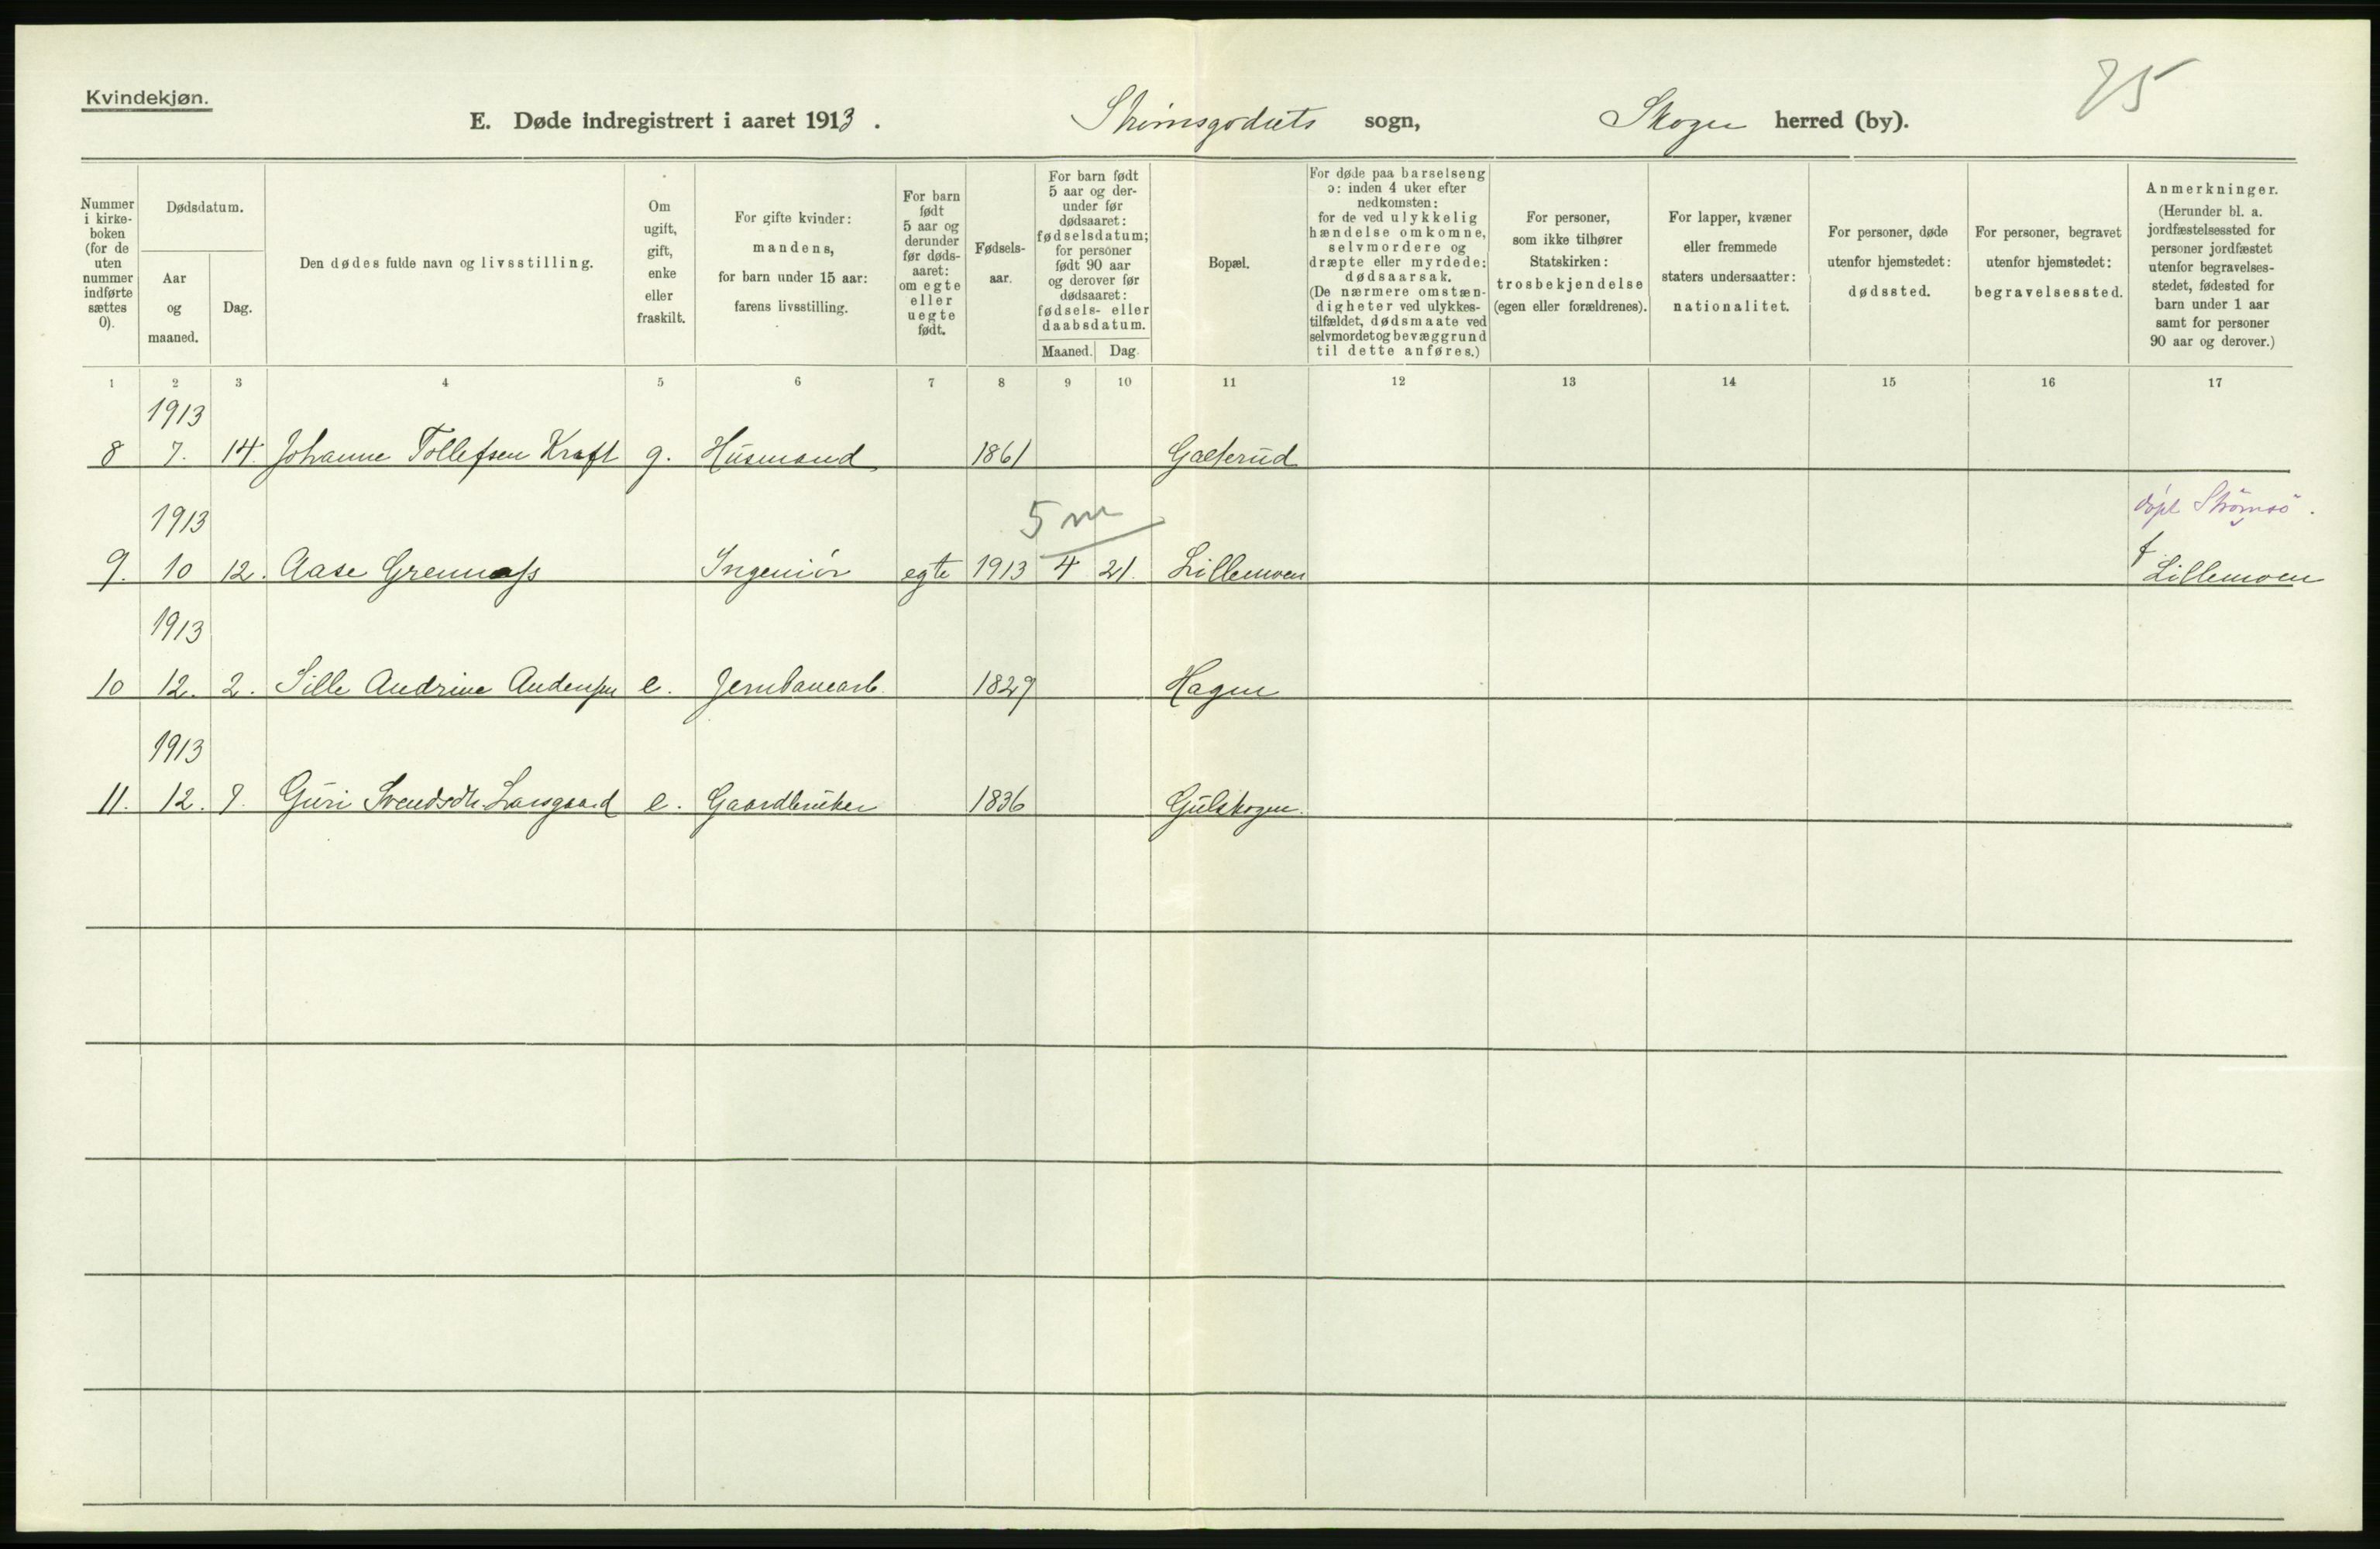 Kvindekjøn.
75
E. Døde indregistrert i aaret 1913. Strömsgodsets sogn, Skoger herred (by).
Nummer i kirke-boken (for de uten nummer indførte sættes 0).
Dødsdatum.
Aar og maaned.
Dag.
Den dødes fulde navn og livsstilling.
Om ugift, gift, enke eller fraskilt.
For gifte kvinder: mandens, for barn under 15 aar: farens livsstilling.
For barn født 5 aar og derunder før døds-aaret: om egte eller uegte født.
Fødsels-aar.
For barn født 5 aar og der-under før dødsaaret: fødselsdatum; for personer født 90 aar og derover før dødsaaret: fødsels- eller daabsdatum.
Maaned. Dag.
Bopæl.
For døde paa barselseng ɔ: inden 4 uker efter nedkomsten: for de ved ulykkelig hændelse omkomne, selvmordere og dræpte eller myrdede: dødsaarsak. (De nærmere omstæn-digheter ved ulykkes-tilfældet, dødsmaate ved selvmordet og bevæggrund til dette anføres.)
For personer, som ikke tilhører Statskirken: trosbekjendelse (egen eller forældrenes).
For lapper, kvæner eller fremmede staters undersaatter: nationalitet.
For personer, døde utenfor hjemstedet: dødssted.
For personer, begravet utenfor hjemstedet: begravelsessted.
Anmerkninger. (Herunder bl. a. jordfæstelsessted for personer jordfæstet utenfor begravelses-stedet, fødested for barn under 1 aar samt for personer 90 aar og derover.)
1 2 3 4 5 6 7 8 9 10 11 12 13 14 15 16 17
1913
8 7. 14. Johanne Tollefsen Kraft g. Husmand 1861 Galterud
1913 5 m döpt Strömsö.
9. 10 12. Aase Grennæss Ingeniör egte 1913 4 21. Lillemoen f Lillemoen
1913
10 12. 2. Sille Andrine Andersen e. Jernbanearb. 1829 Hagen
1913
11. 12. 9. Guri Svendsdtr. Langaard e. Gaardbruker 1836 Gulskogen.